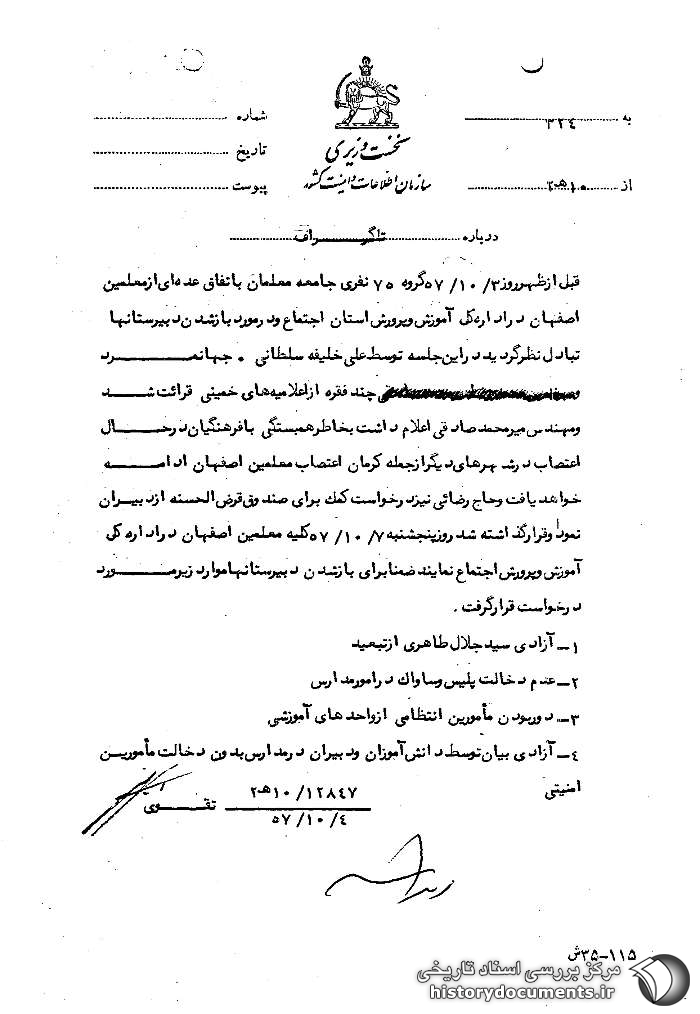 به ۳۲٤
شماره
نخست وزیری
تاریخ
سازمان اطلاعات و امنیت کشور
از ۱۰هـ۲
پیوست
درباره تلگراف
قبل از ظهر روز ۵۷/۱۰/۳ گروه ۷۵ نفری جامعه معلمان باتفاق عده‌ای از معلمین
اصفهان در اداره کل آموزش و پرورش استان اجتماع و در مورد باز شدن دبیرستانها
تبادل نظر گردید در این جلسه توسط علی خلیفه سلطانی . جهانمرد
چند فقره از اعلامیه‌های خمینی قرائت شد
و مهندس میر محمد صادقی اعلام داشت بخاطر همبستگی با فرهنگیان در حال
اعتصاب در شهرهای دیگر از جمله کرمان اعتصاب معلمین اصفهان ادامه
خواهد یافت و حاج رضائی نیز درخواست کمک برای صندوق قرض الحسنه از دبیران
نمود و قرار گذاشته شد روز پنجشنبه ۵۷/۱۰/۷ کلیه معلمین اصفهان در اداره کل
آموزش و پرورش اجتماع نمایند ضمنا برای باز شدن دبیرستانها موارد زیر مورد
درخواست قرار گرفت .
۱ـ آزادی سید جلال طاهری از تبعید
۲ـ عدم دخالت پلیس و ساواک در امور مدارس
۳ـ دور بودن مأمورین انتظامی از واحدهای آموزشی
٤ـ آزادی بیان توسط دانش آموزان و دبیران در مدارس بدون دخالت مأمورین
امنیتی
۱۰/۱۲۸٤۷هـ۲
تقوی
۵۷/۱۰/٤
۳۵-۱۱۵ش
مرکز بررسی اسناد تاریخی
historydocuments.ir